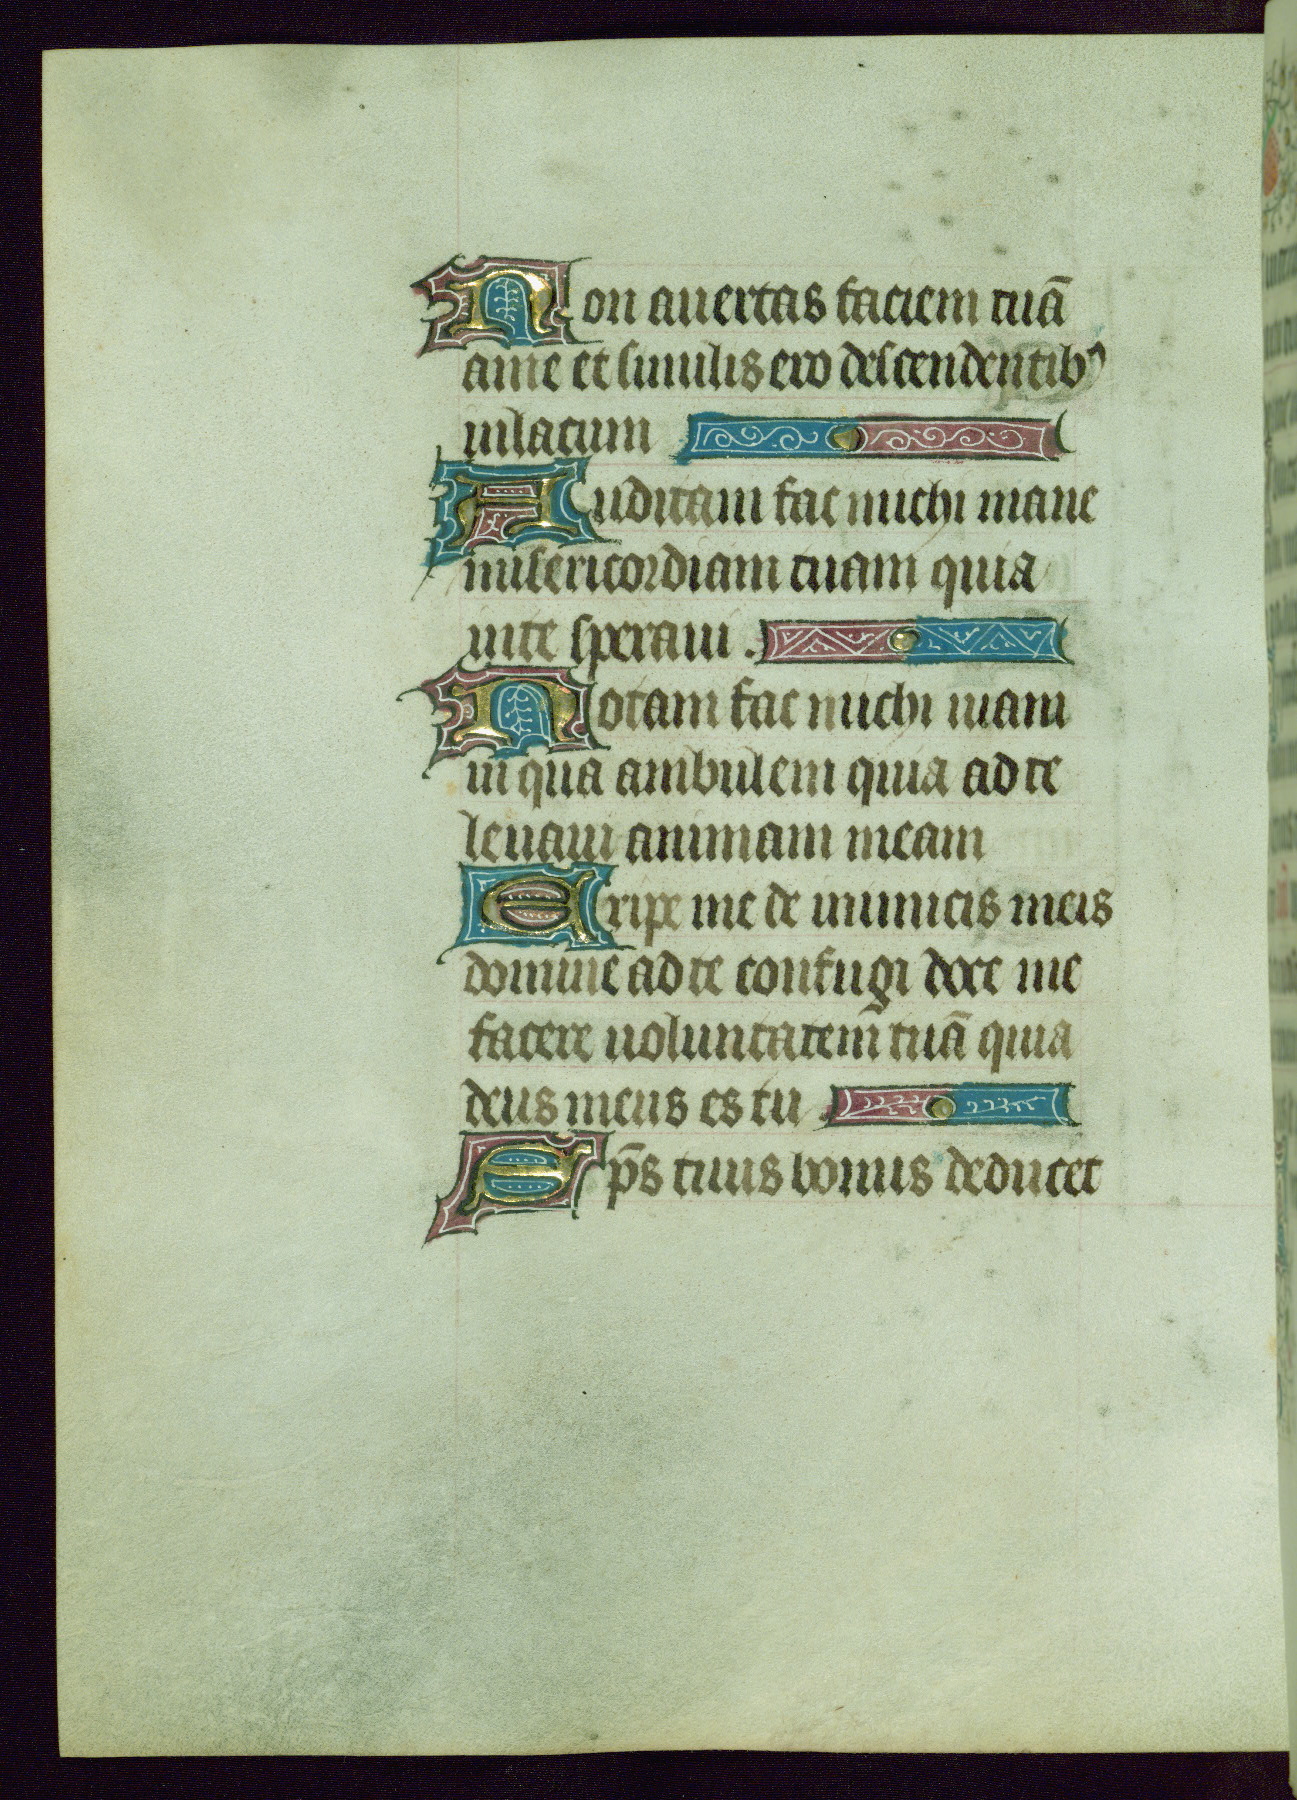 Non auertas faciem tuā
ame et similis ero descendentibꝰ
inlacum
Auditam fac michi mane
misericordiam tuam quia
inte speraui.
Notam fac michi uiam
in qua ambulem quia ad te
leuaui animam meam
Eripe me de inimicis meis
domine ad te confugi doce me
facere uoluntatem tuā quia
deus meus es tu.
Sp̄s tuus bonus deducet